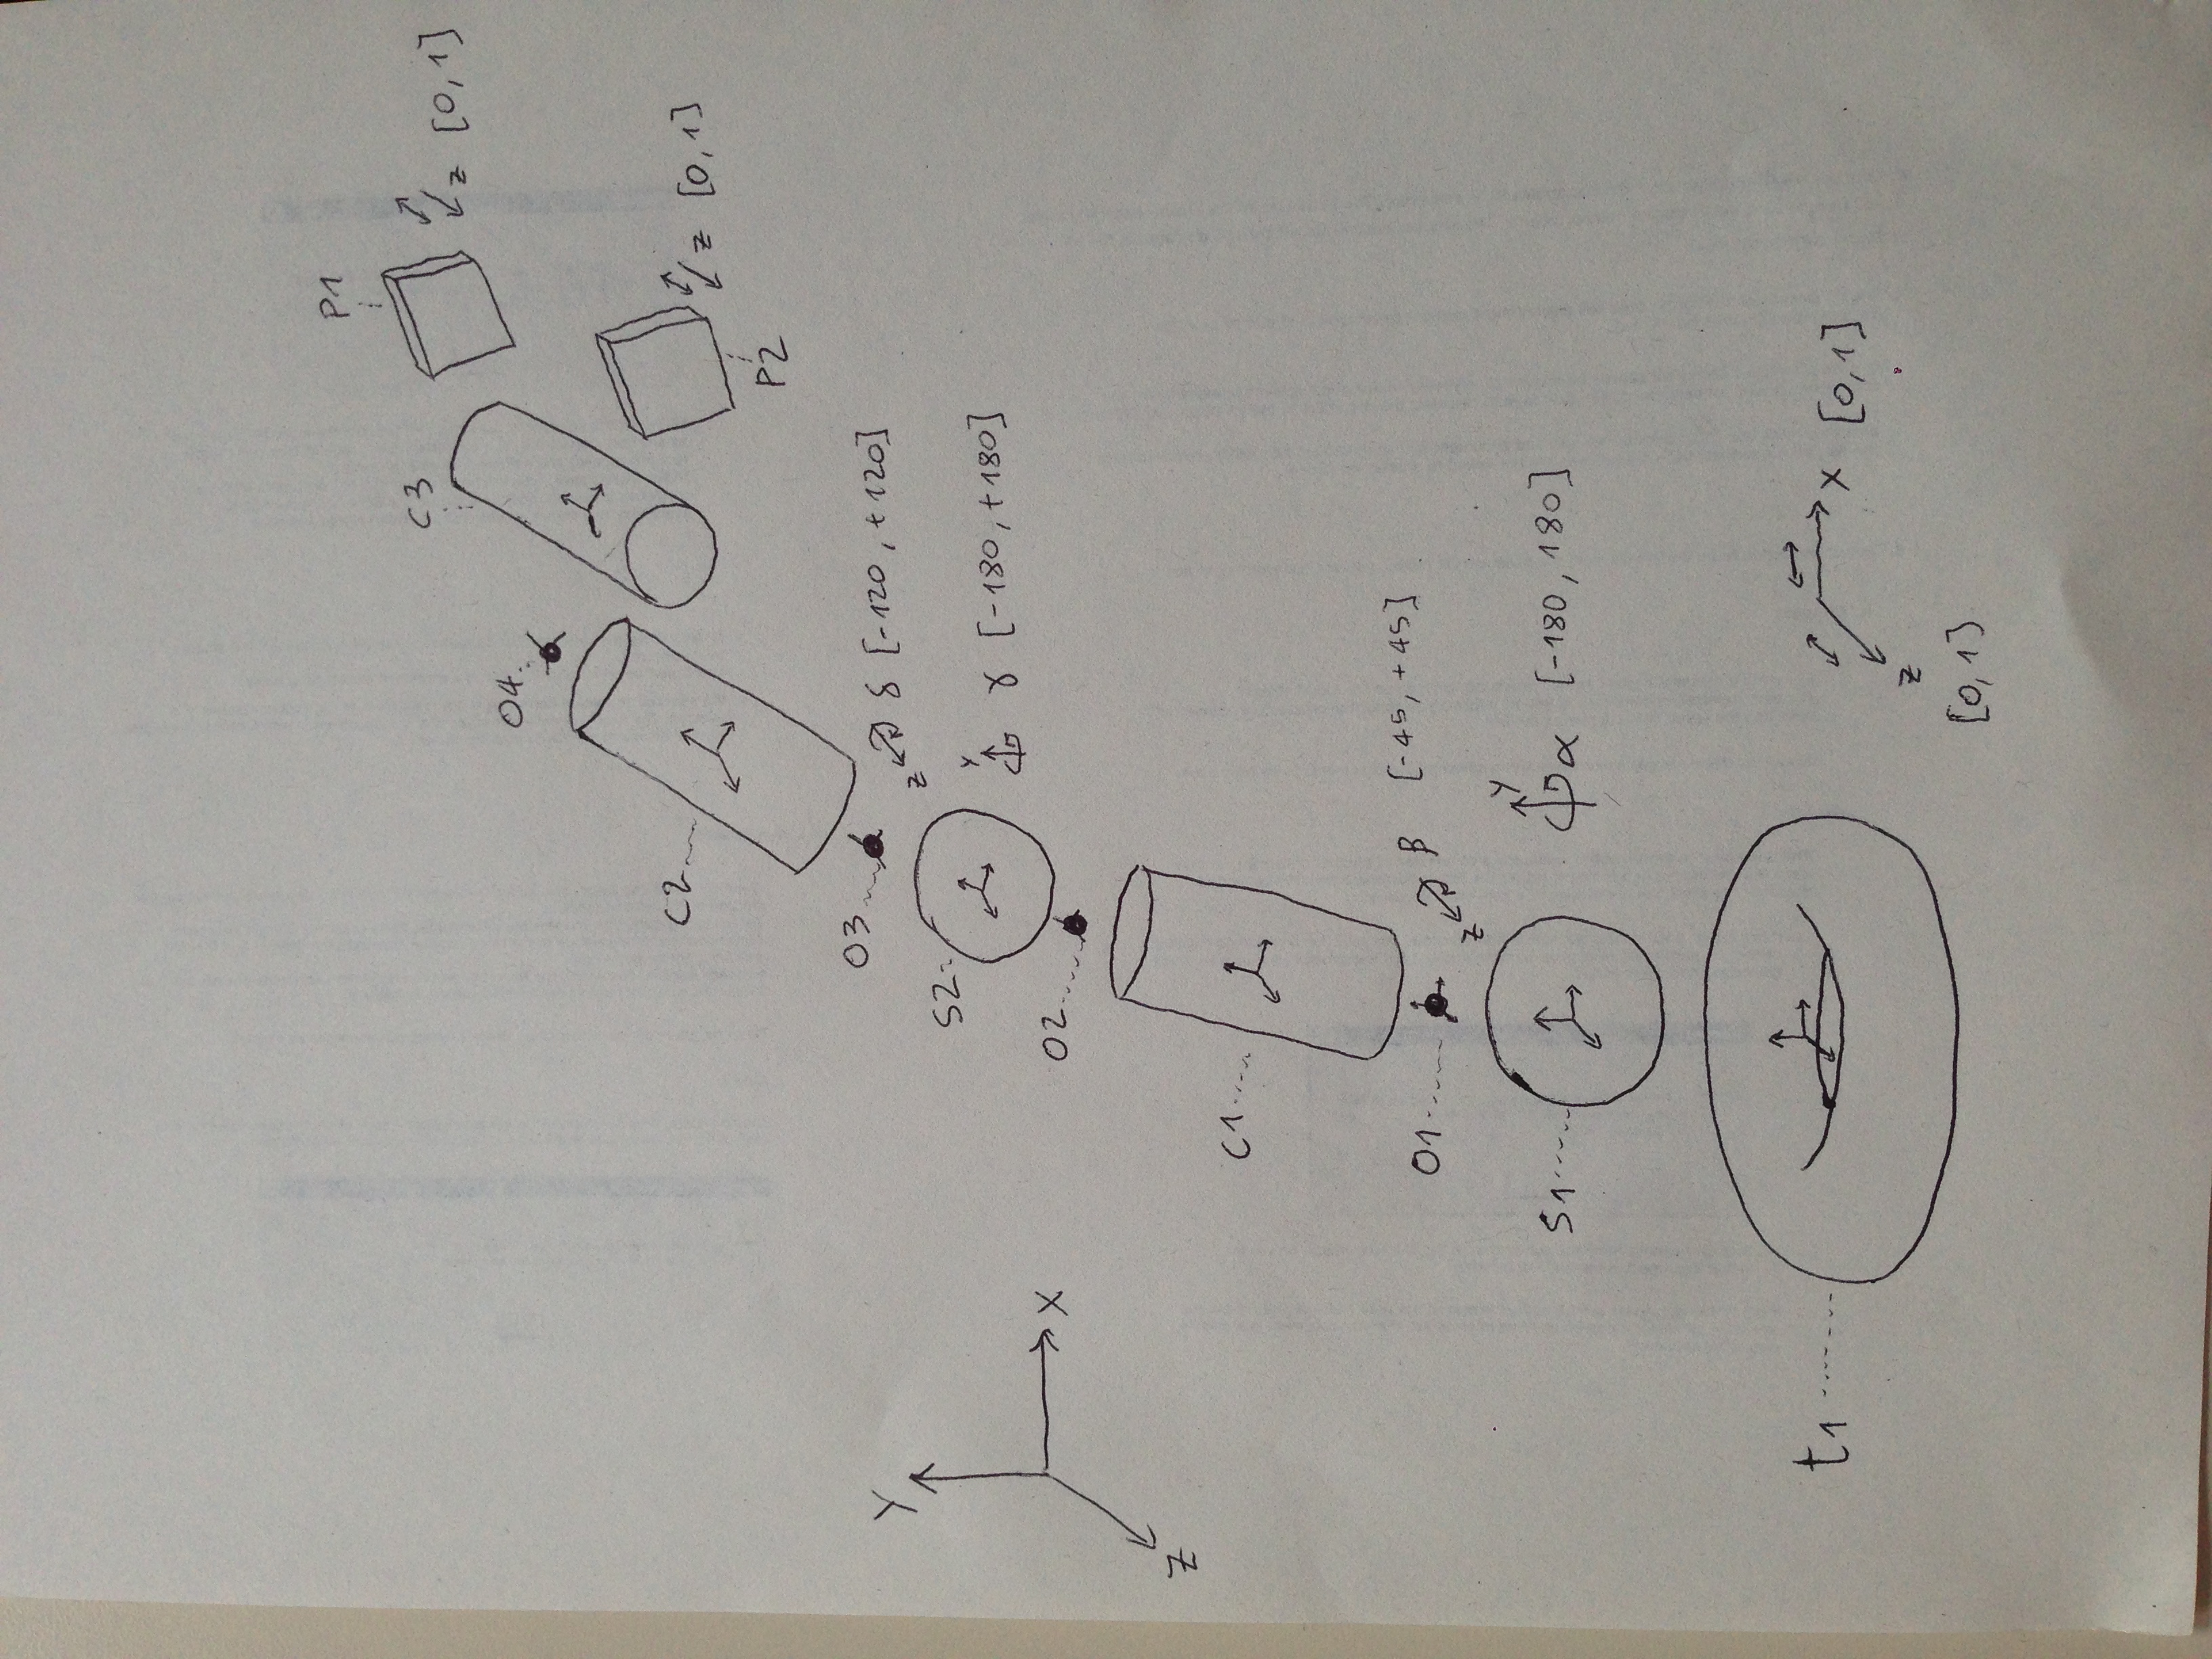 P1
z [0,1]
C3
O4
C2
z [0,1]
P2
O3
z δ [-120, +120]
S2
y γ [-180, +180]
O2
Y
X
Z
C1
O1
z β [-45, +45]
S1
y α [-180, 180]
t1
X [0,1]
z
[0,1]